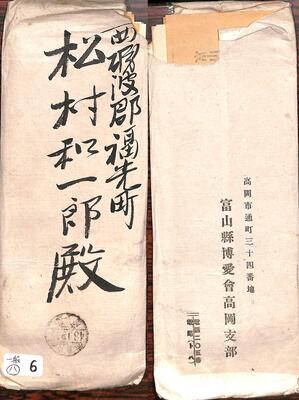 西礪波郡福光町
松村和一郎殿
一般
八
6
高岡市通町三十四番地
富山縣博愛會高岡支部